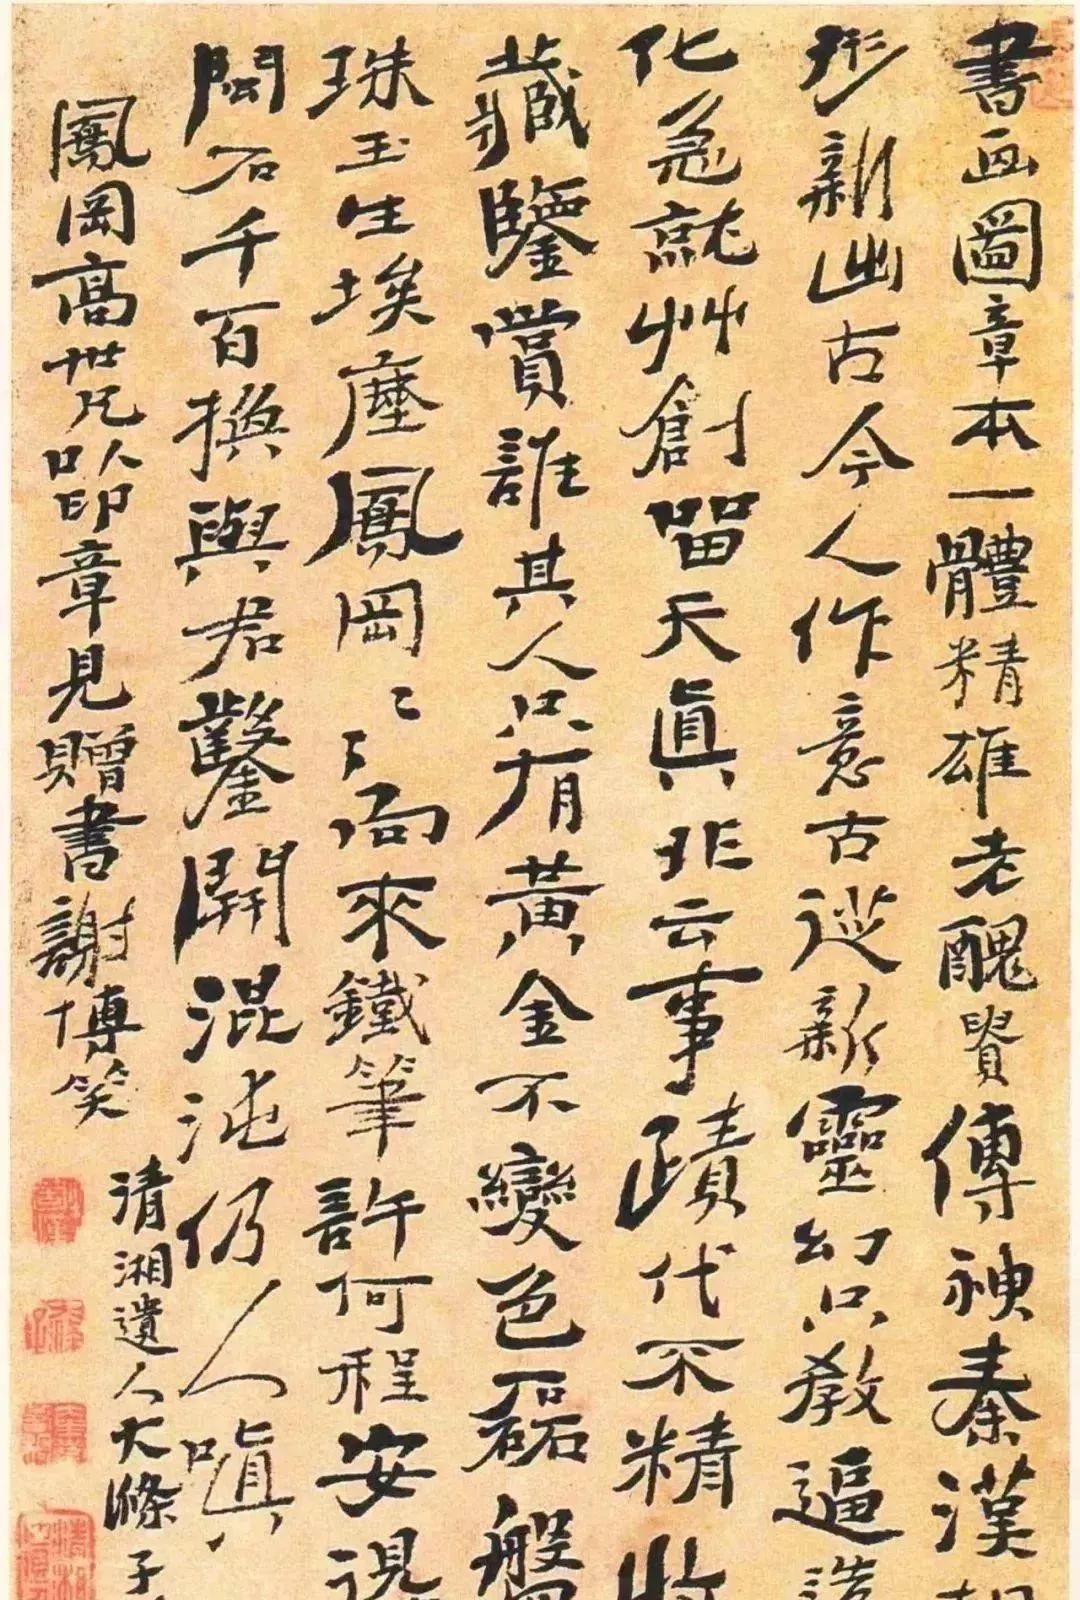 書画圖章本一體精雄老醜貴傳神秦漢
形新出古今人作意古從新靈幻只教逼造
化急就艸創留天真非云事蹟代不精收
藏鑒賞誰其人只有黃金不變色磊般
珠玉生埃塵鳳岡鳳岡向來鐵筆許何程安
閩石千百換與君鑿開混沌仍人嗔
鳳岡高世兄以印章見贈書謝博笑
清湘遺人大滌子